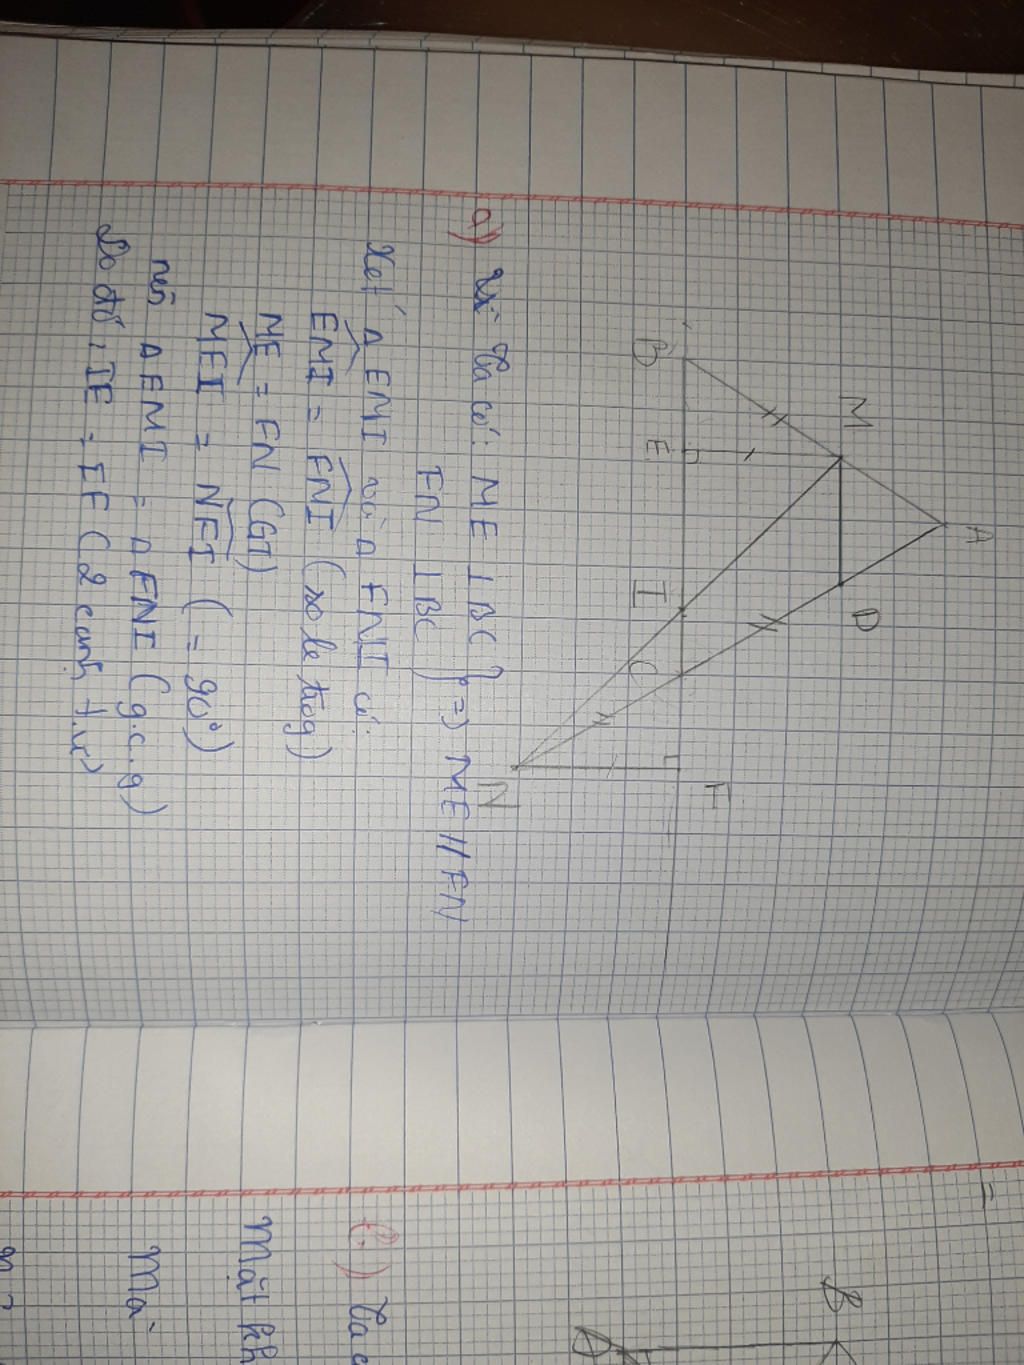 A
M
D
B
E
I
C
F
N
a) Vì Ta có: ME ⊥ BC
FN ⊥ BC } => ME // FN
Xét Δ EMI và Δ FNI có:
EMI = FNI (so le trog)
ME = FN (GT)
MEI = NFI ( = 90°)
nên Δ EMI = Δ FNI ( g.c.g)
Do đó: IE = IF ( 2 cạnh t.ư)
B
Ta c
Mặt kh
Mà